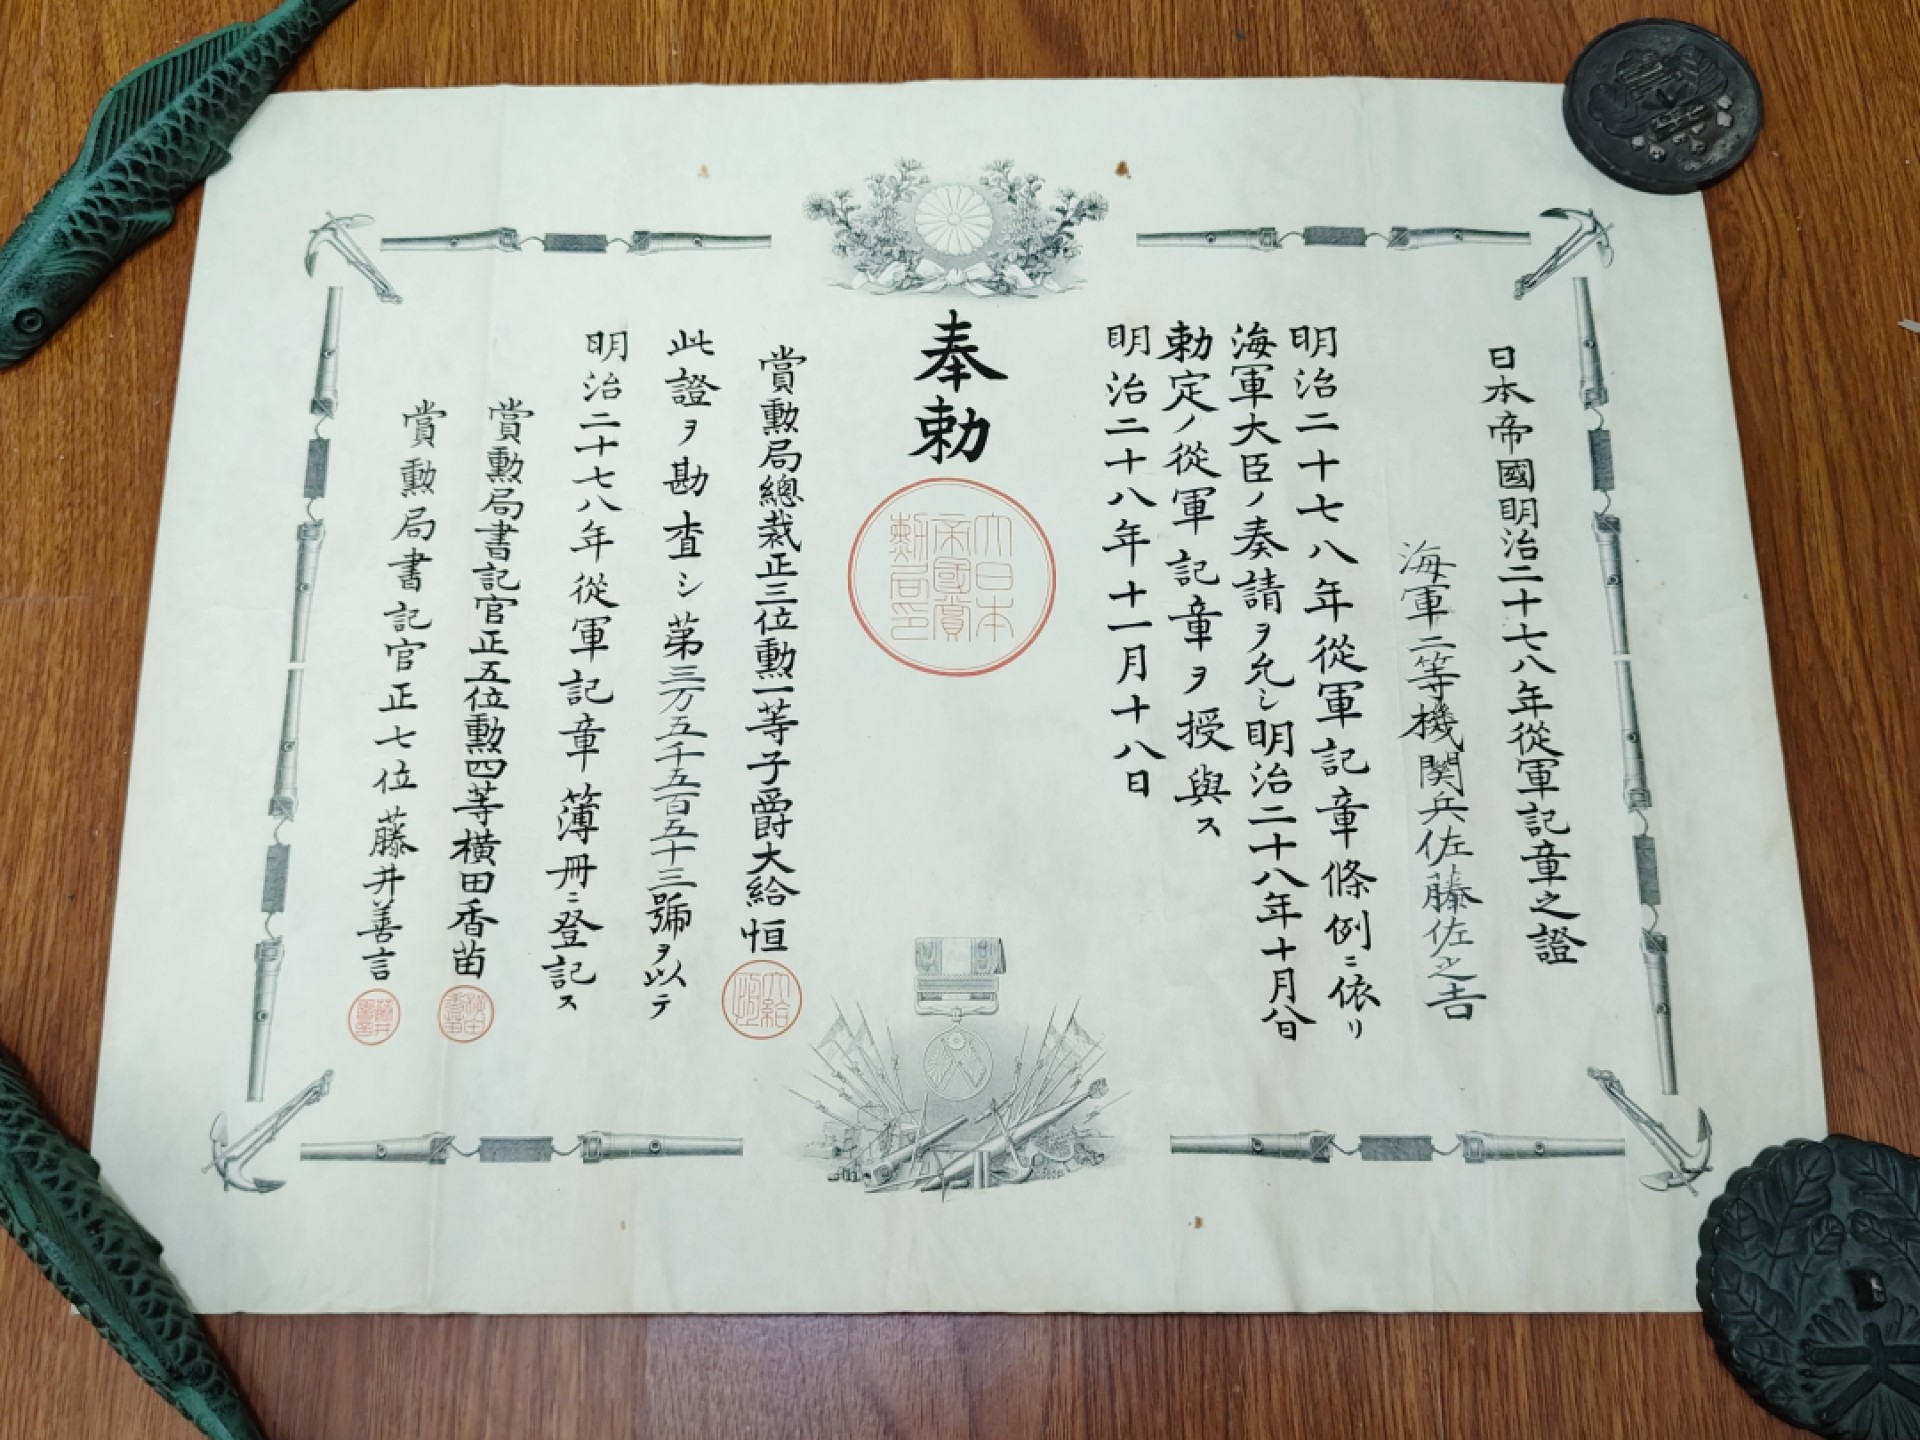 日本帝國明治二十七八年從軍記章之證
海軍二等機関兵佐藤佐之吉
明治二十七八年從軍記章條例ニ依リ
海軍大臣ノ奏請ヲ允シ明治二十八年十月八日
勅定ノ從軍記章ヲ授與ス
明治二十八年十一月十八日
奉勅
大日本
帝國賞
勲局印
賞勲局總裁正三位勲一等子爵大給恒
此證ヲ勘査シ第三万五千五百五十三號ヲ以テ
明治二十七八年從軍記章簿冊ニ登記ス
賞勲局書記官正五位勲四等横田香苗
賞勲局書記官正七位藤井善言